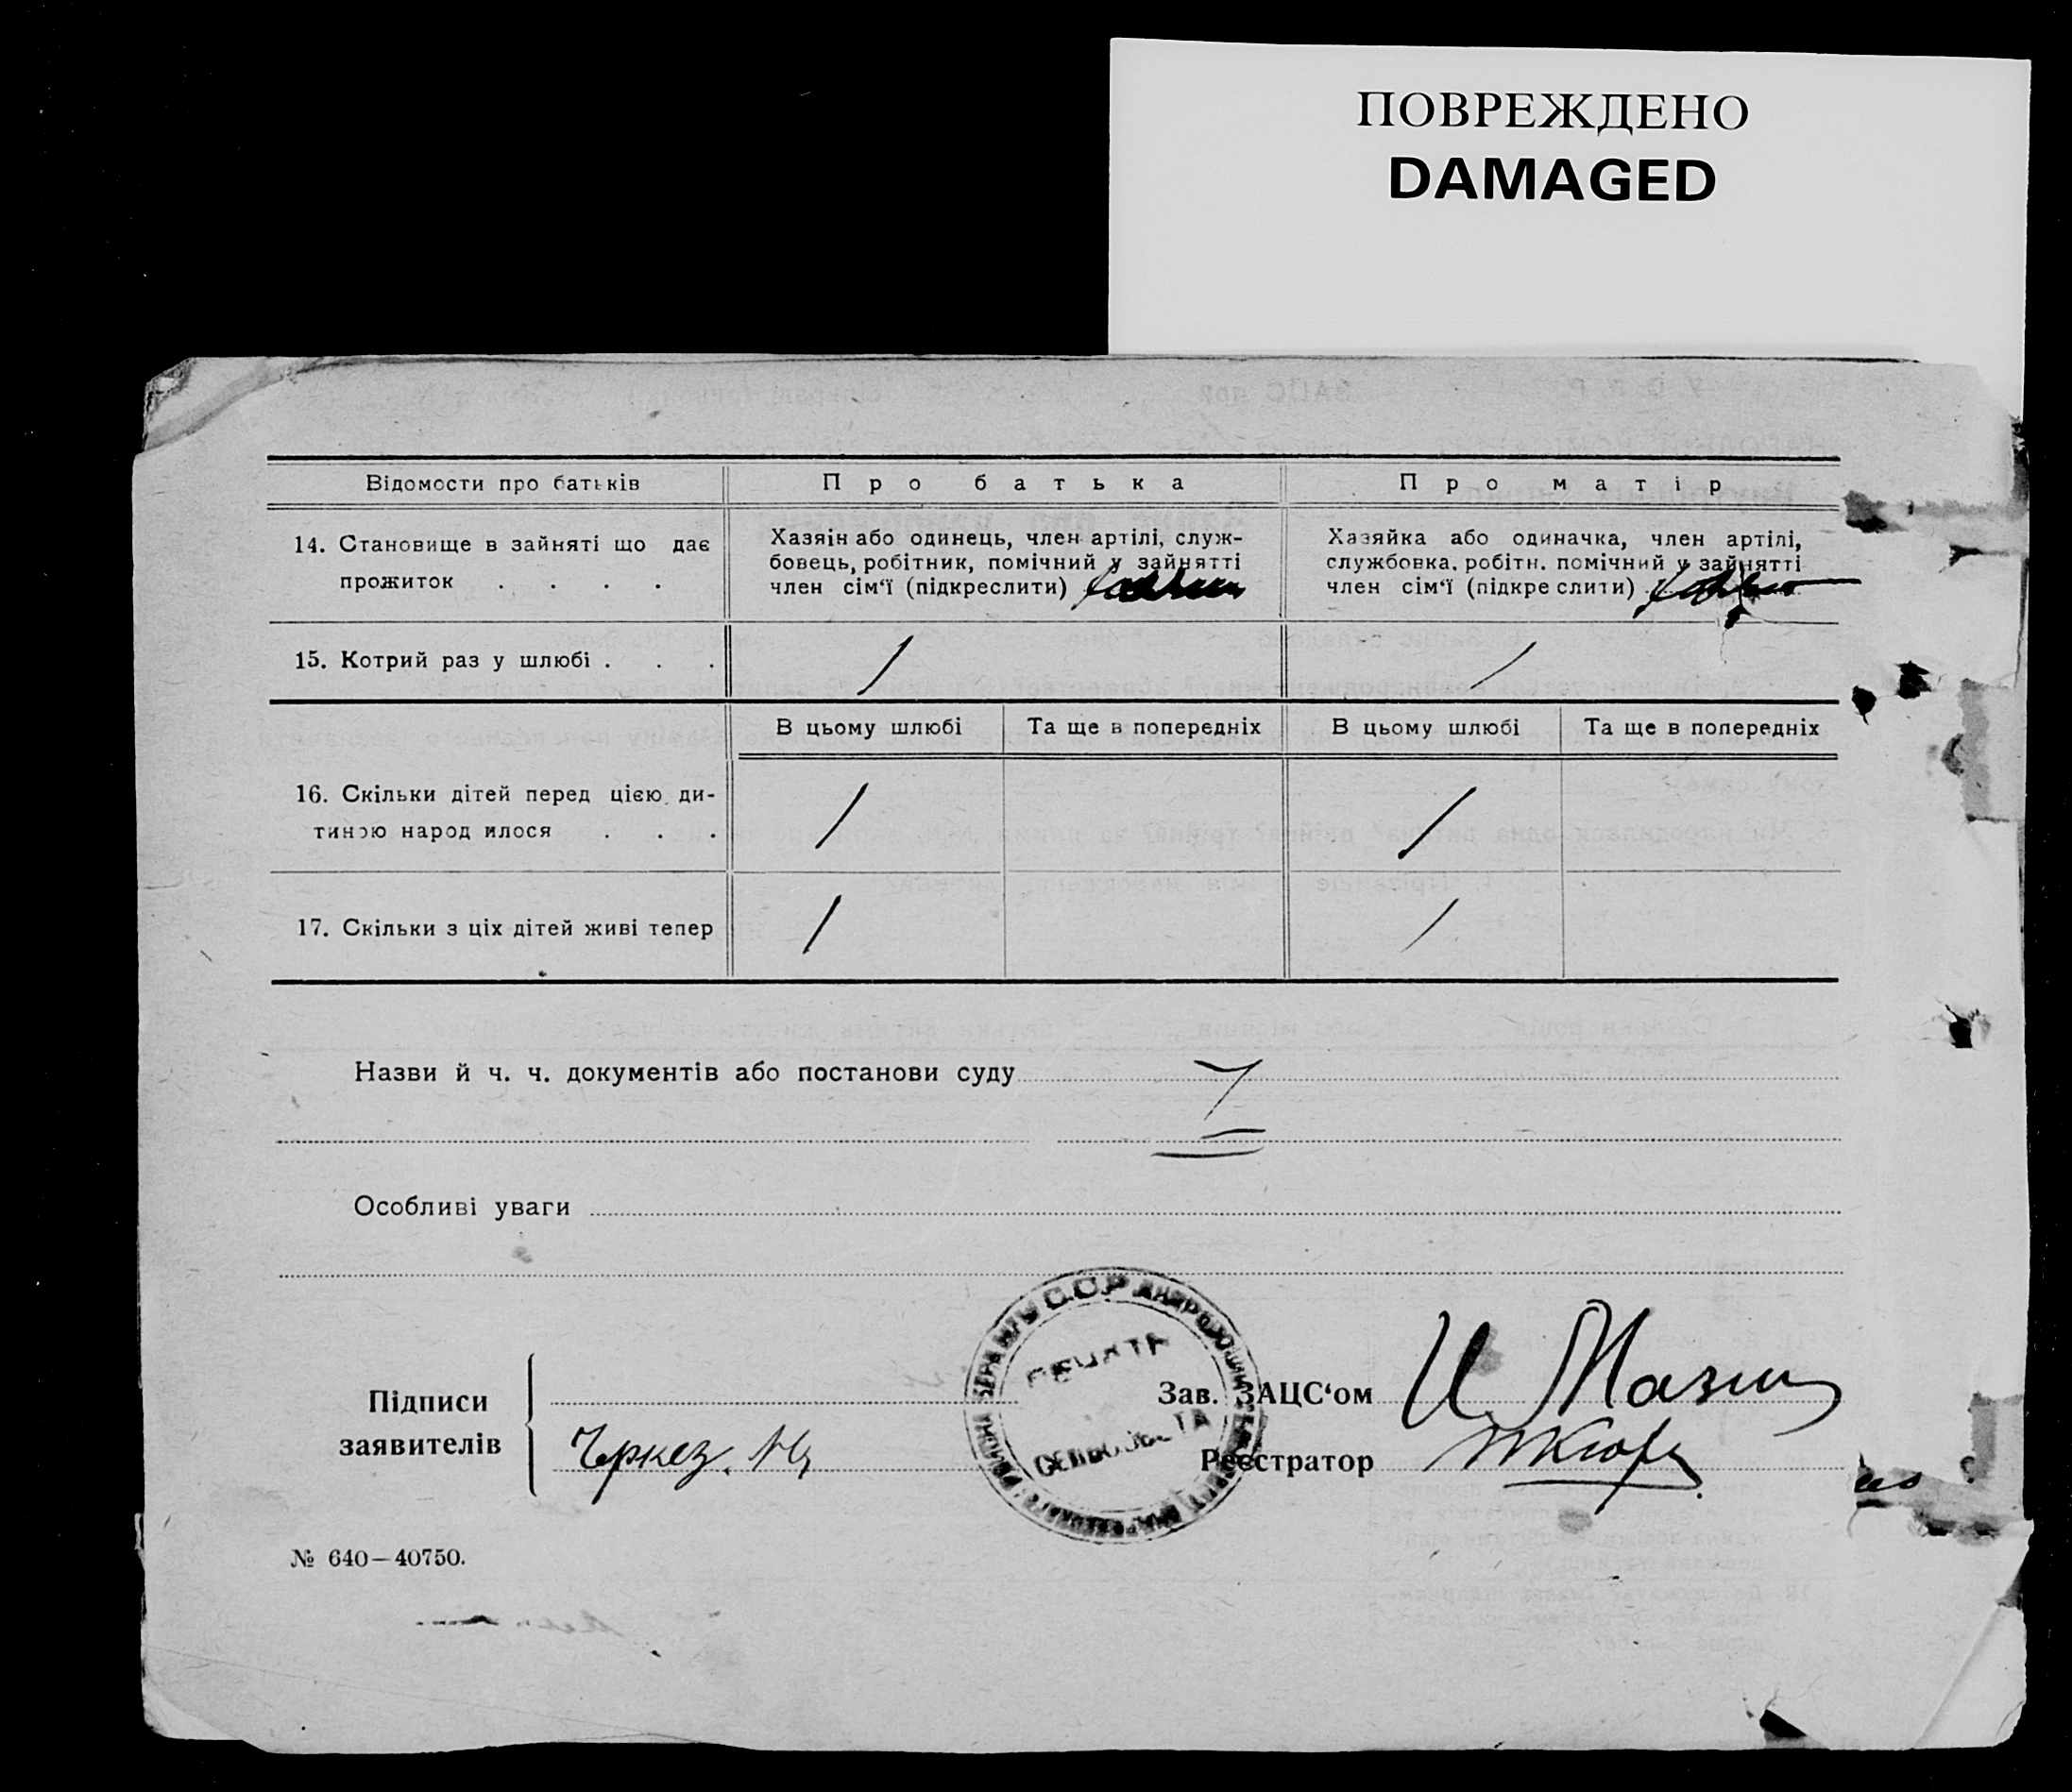 ПОВРЕЖДЕНО
DAMAGED
Відомости про батьків
Про батька
Про матір
14. Становище в зайняті що дає
прожиток . . . .
Хазяін або одинець, член артілі, служ-
бовець, робітник, помічний у зайнятті
член сім‘ї (підкреслити)
Хазяйка або одиначка, член артілі,
службовка, робітн. помічний у зайнятті
член сім‘ї (підкре слити)
15. Котрий раз у шлюбі . . .
/
/
В цьому шлюбі
Та ще в попередніх
В цьому шлюбі
Та ще в попередніх
16. Скільки дітей перед цією ди-
тиною народ илося . . .
/
/
17. Скільки з ціх дітей живі тепер
/
/
Назви й ч. ч. документів або постанови суду
Особливі уваги
УССР
ПЕЧАТА
Підписи
заявителів
Зав. ЗАЦС‘ом
Реєстратор
№ 640—40750.